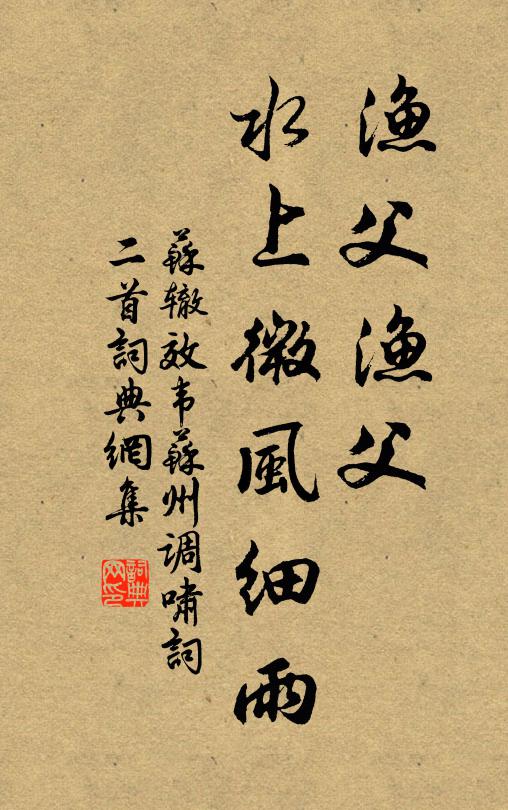 漁父漁父
水上微風細雨
蘇辙效韦蘇州调嘯詞
二首詞典網集
詞典网印